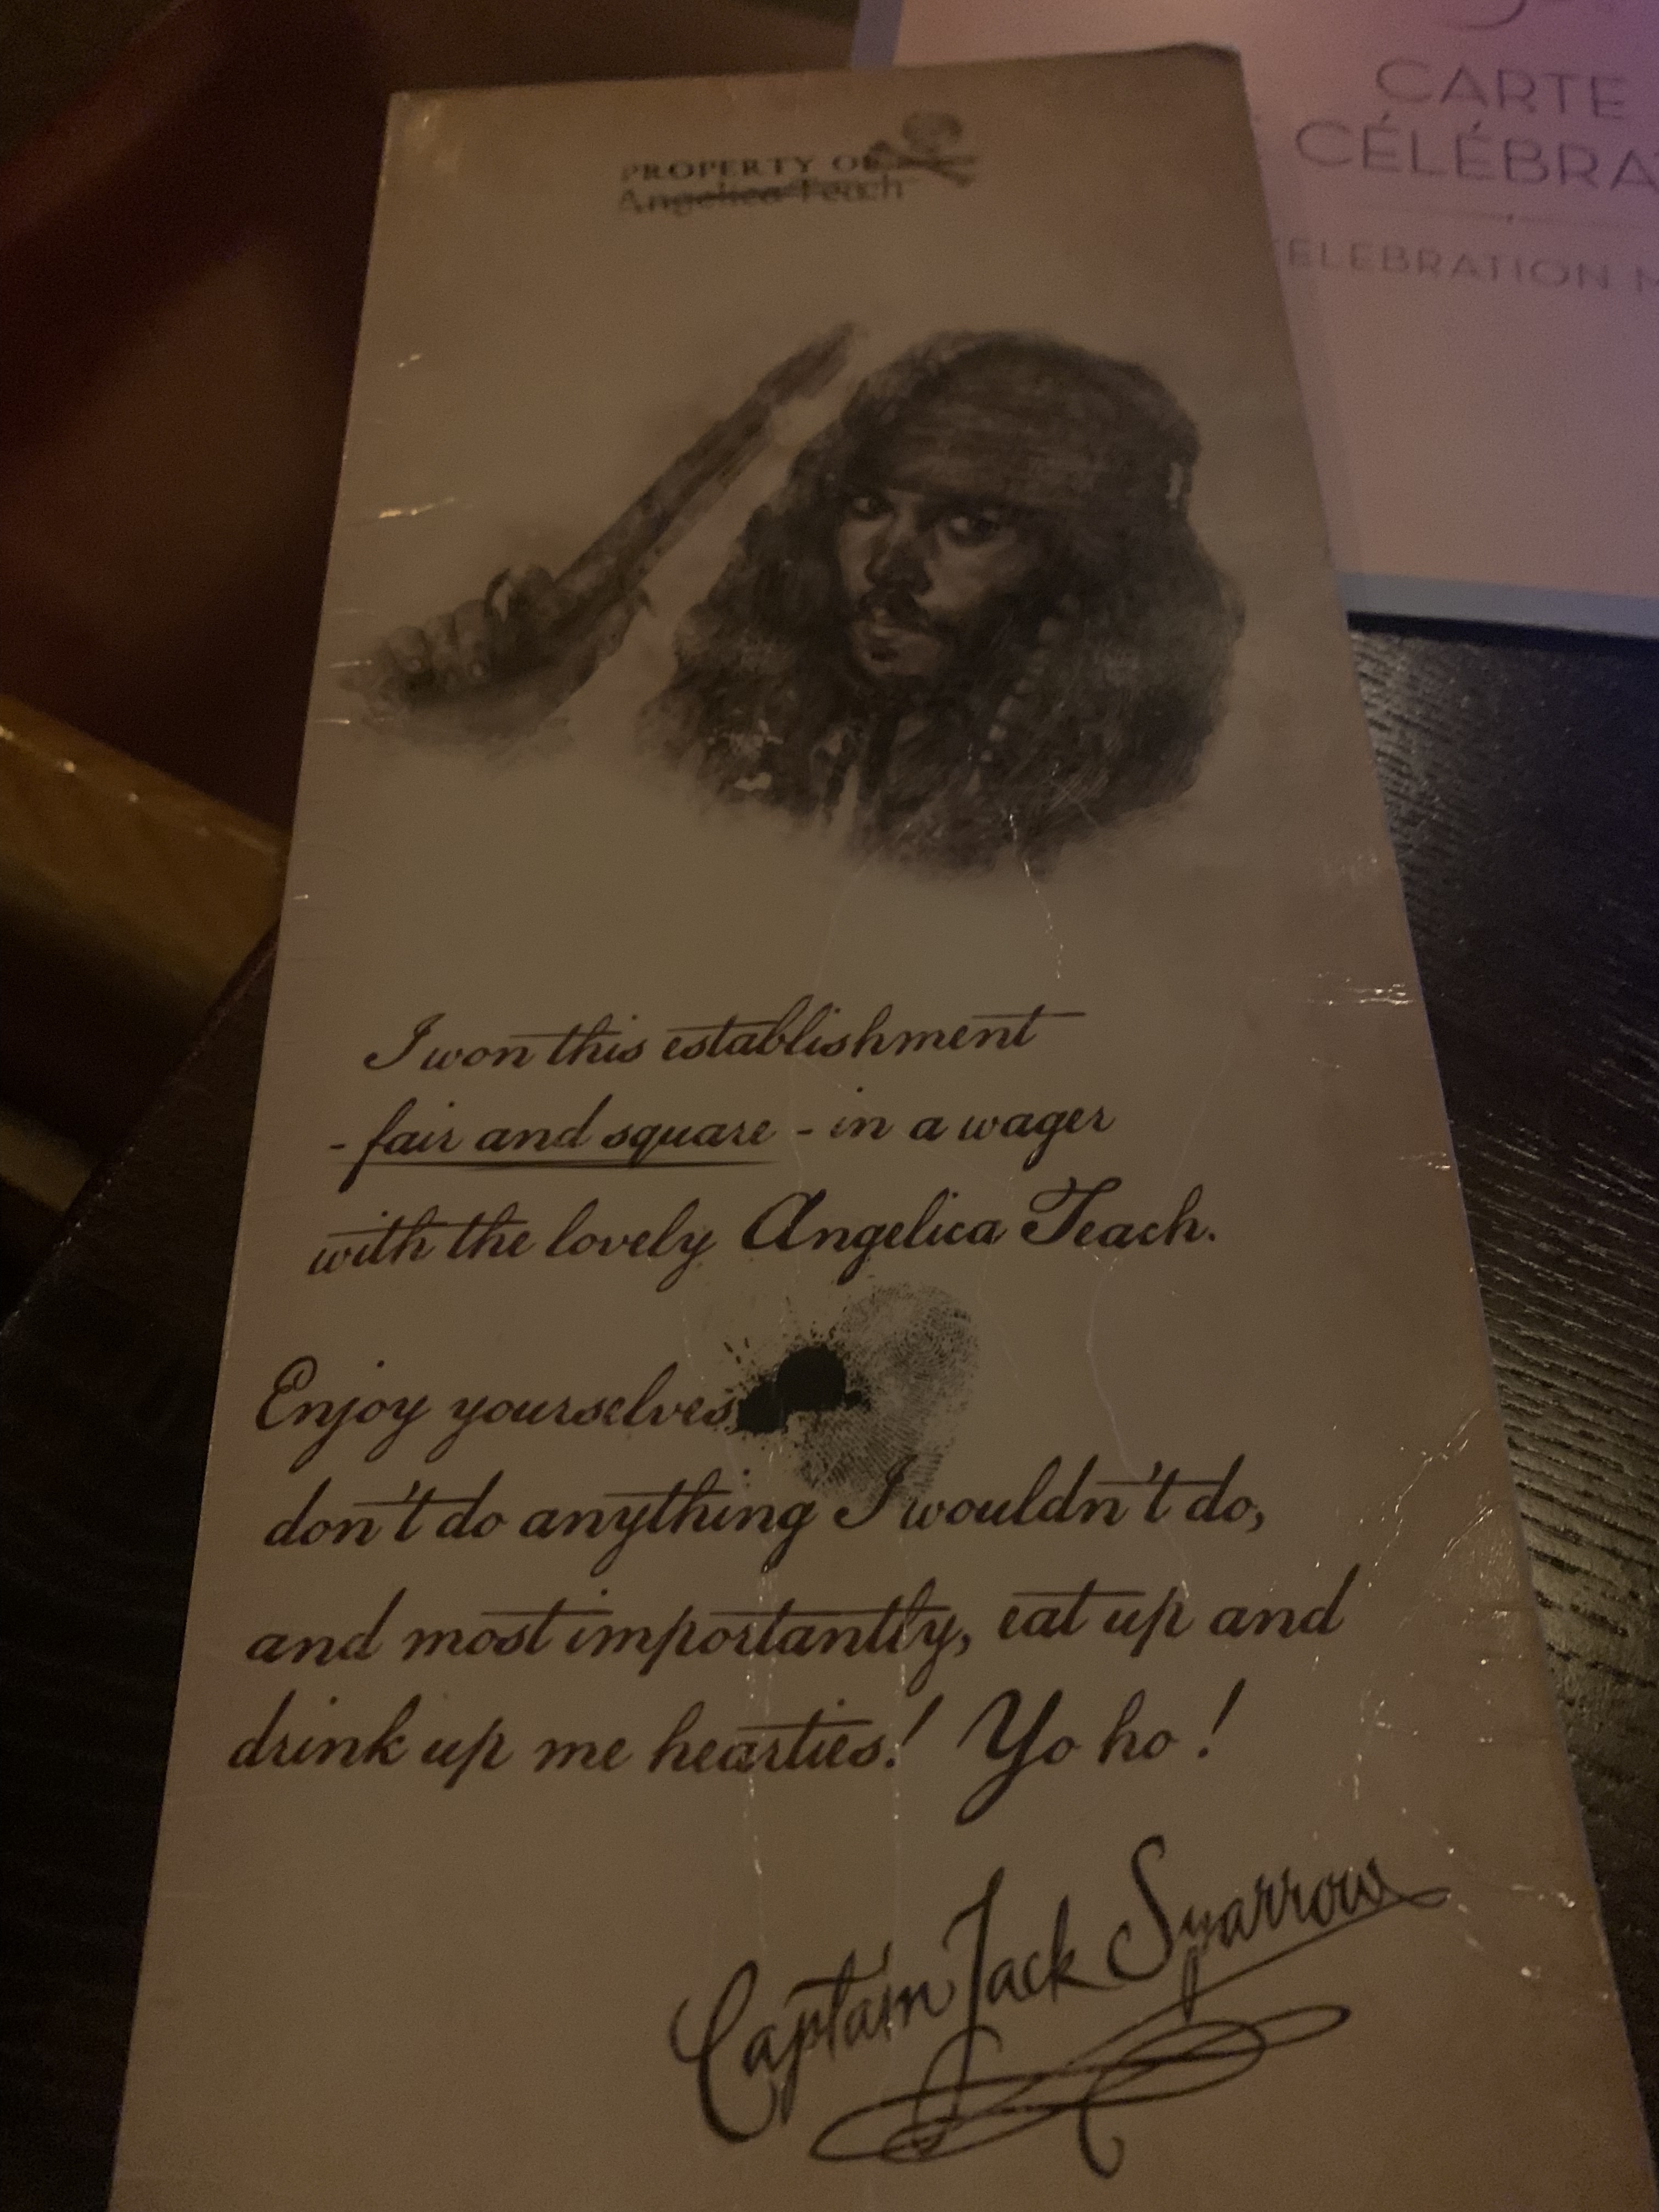 PROPERTY OF
Angelica Teach
CARTE
CÉLÉBRA
ELEBRATION
I won this establishment
- fair and square - in a wager
with the lovely Angelica Teach.
Enjoy yourselves
don't do anything I wouldn't do,
and most importantly, eat up and
drink up me hearties! Yo ho!
Captain Jack Sparrow